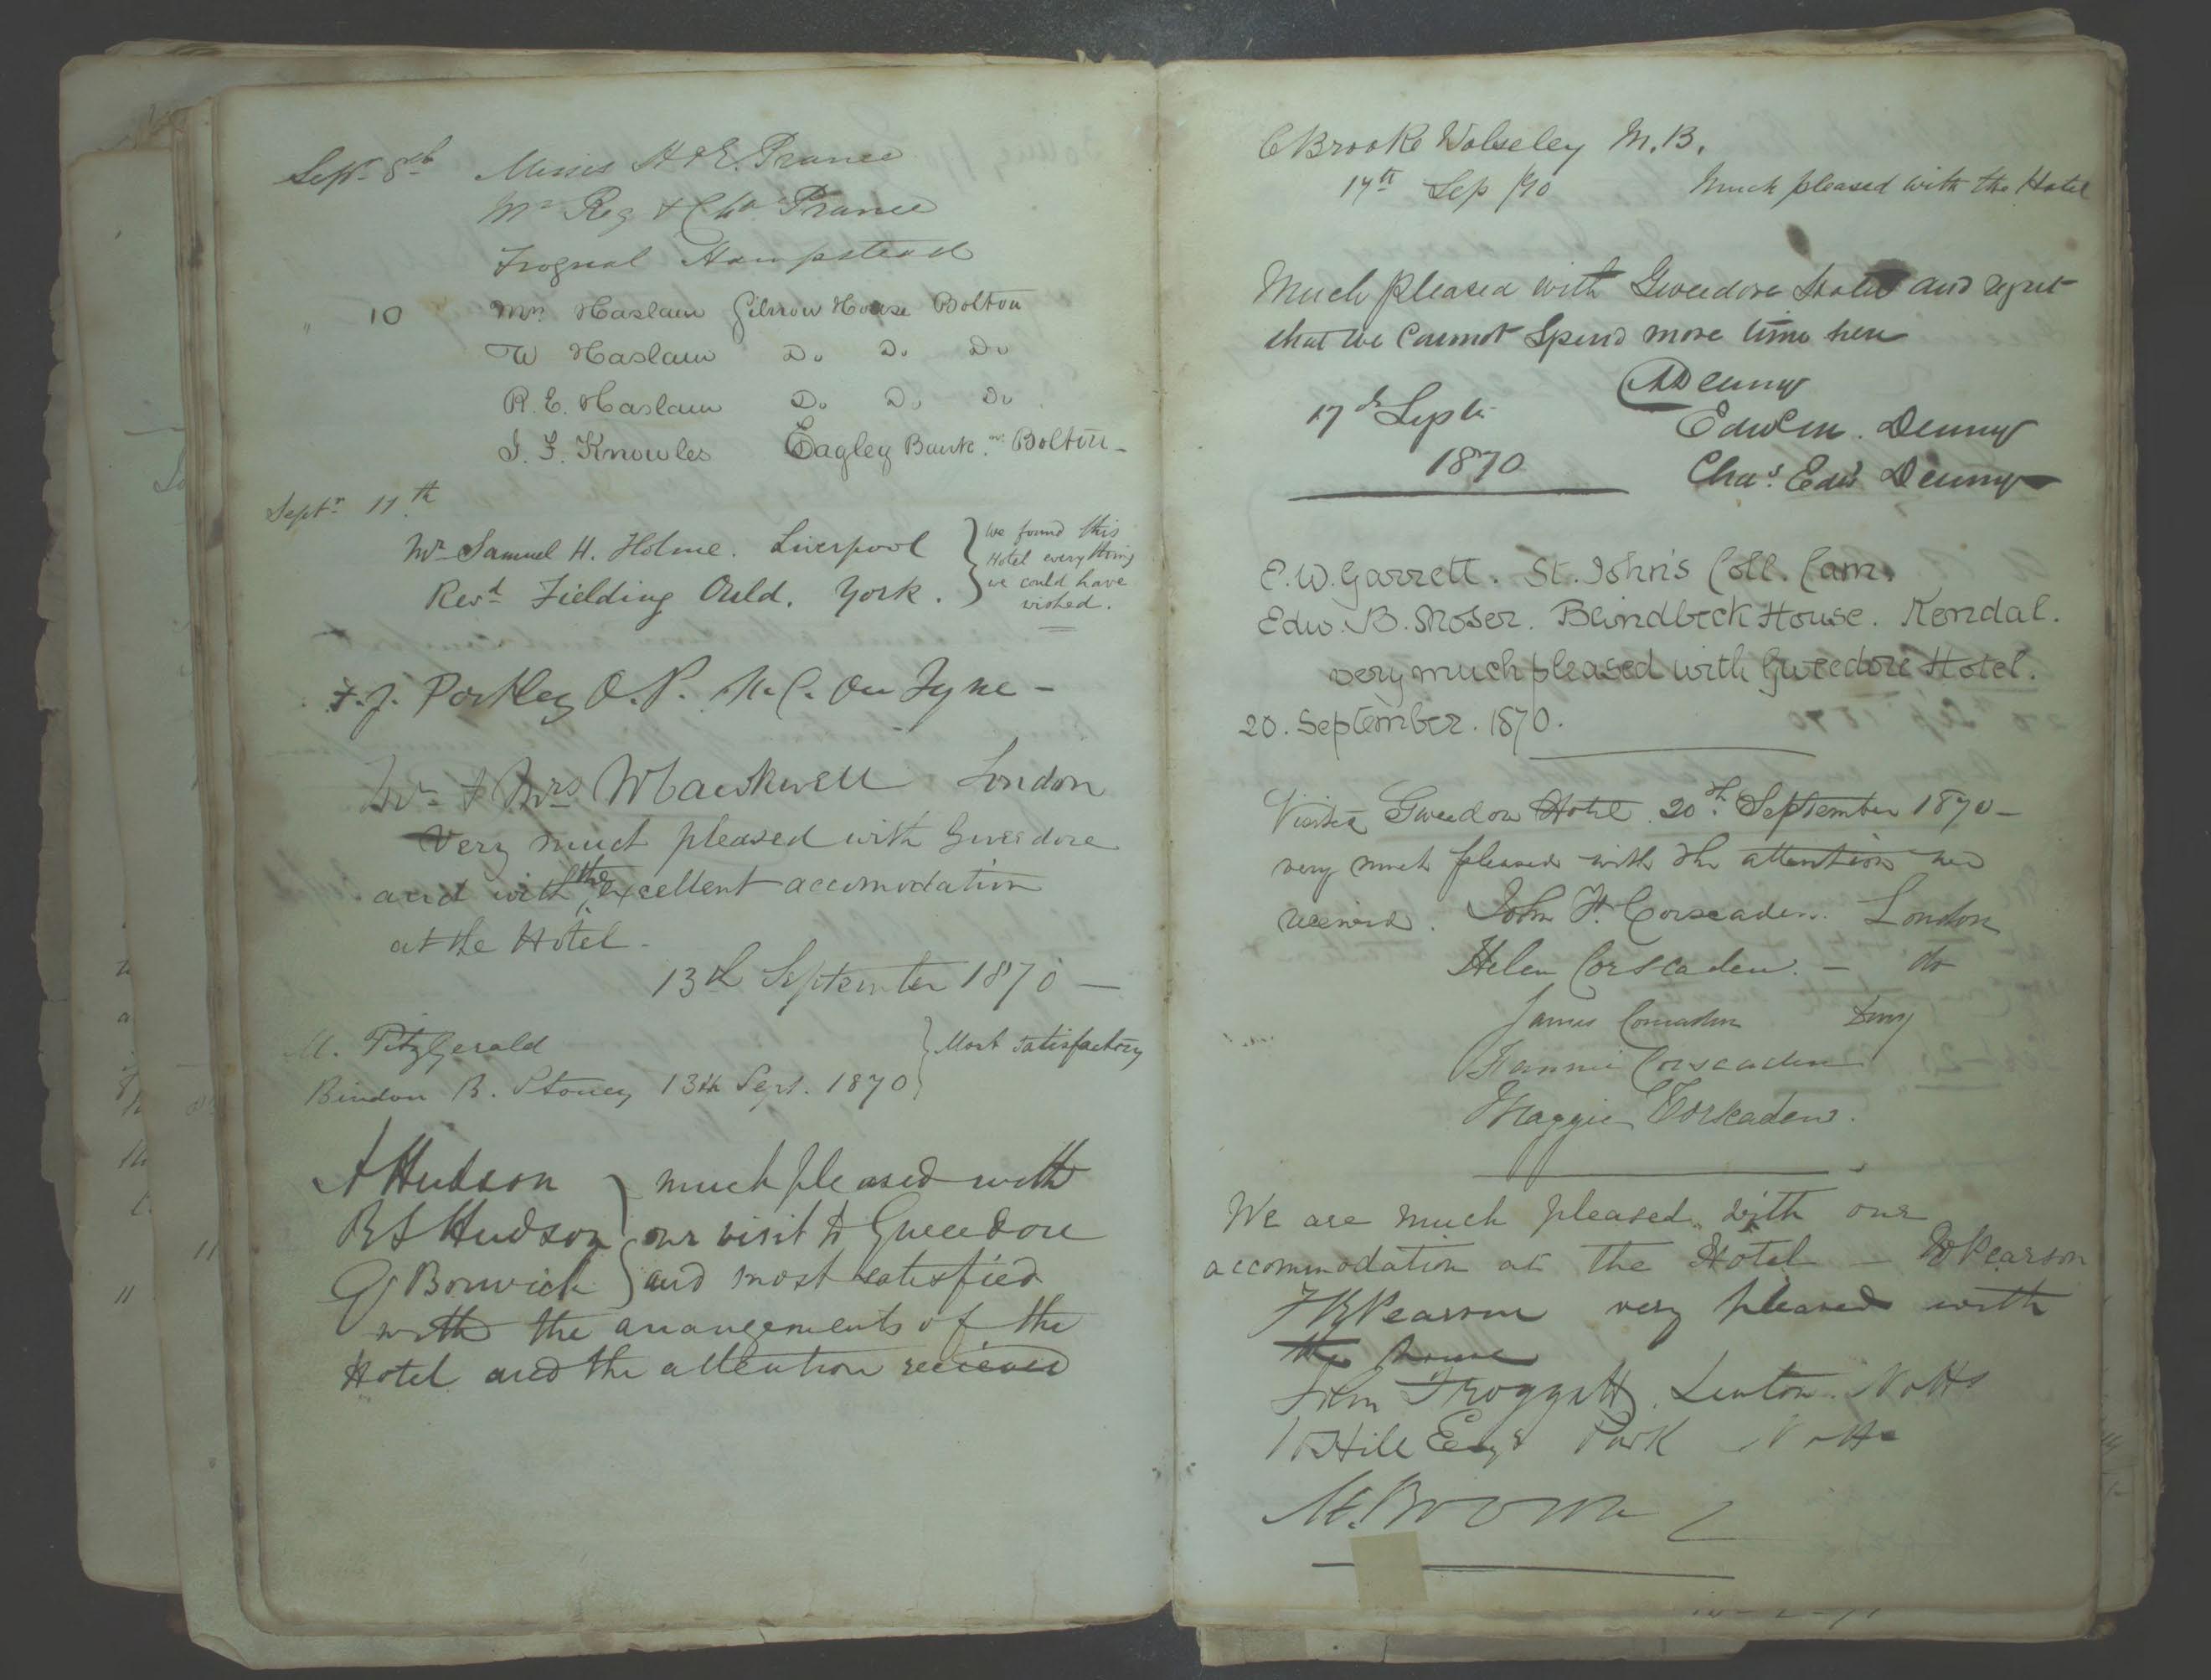 Sept. 8th Misses H & E. Prance
Mr Reg & Chs Prance
Frognal Hampstead
" 10 Mrs. Haslam Gilnow House Bolton
W Haslam Do Do Do
R. E. Haslam Do Do Do
J. F. Knowles Eagley Bank nr. Bolton -
Septr 11th
Mr Samuel H. Holme. Liverpool } we found this
Hotel everything
Revd Fielding Ould. York. } we could have
wished.
F. J. N. C. On Tyne -
Mr & Mrs London
Very much pleased with Gweedore
and with the excellent accomodation
at the Hotel -
13th September 1870 -
M. FitzGerald } Most satisfactory
Bindon B. Stoney 13th Sept. 1870 }
A Hudson } much pleased with
R S Hudson } our visit to Gweedore
G Borwick } and most satisfied
with the arrangements of the
Hotel and the attention recieved
C Brooke Wolseley M.B.
17th Sep /70 Much pleased with the Hotel
Much pleased with Gweedore Hotel and regret
that we cannot spend more time here
A Denny
17th Septr Edwin. Denny
1870 Chas. Edwd Denny
E. W. Garrett. St. John's Coll. Cam.
Edw. B. Moser. Blindbeck House. Kendal.
very much pleased with Gweedore Hotel.
20. September. 1870.
Visited Gweedore Hotel 20th September 1870 -
very much pleased with the attention we
received. John H. Corscaden. London
Helen Corscaden. - do
James Corscaden Derry
Fannie Corscaden
Maggie Corscaden.
We are much pleased with our
accommodation at the Hotel - Pearson
Pearson very pleased with
the house
John Froggatt. Lenton. Notts
Hill Park Notts
M. Brown